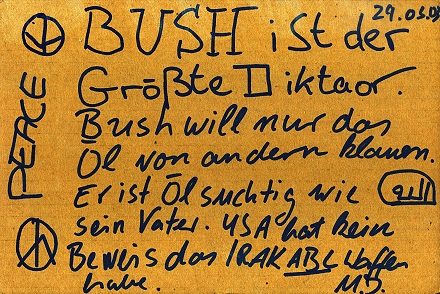 29.03.03
BUSH ist der
Größte Diktaor.
Bush will nur das
Öl von andern klauen.
Er ist Ölsüchtig wie
sein Vater. USA hat kein
Beweis das IRAK ABC Waffen
habe. M.D.
PEACE